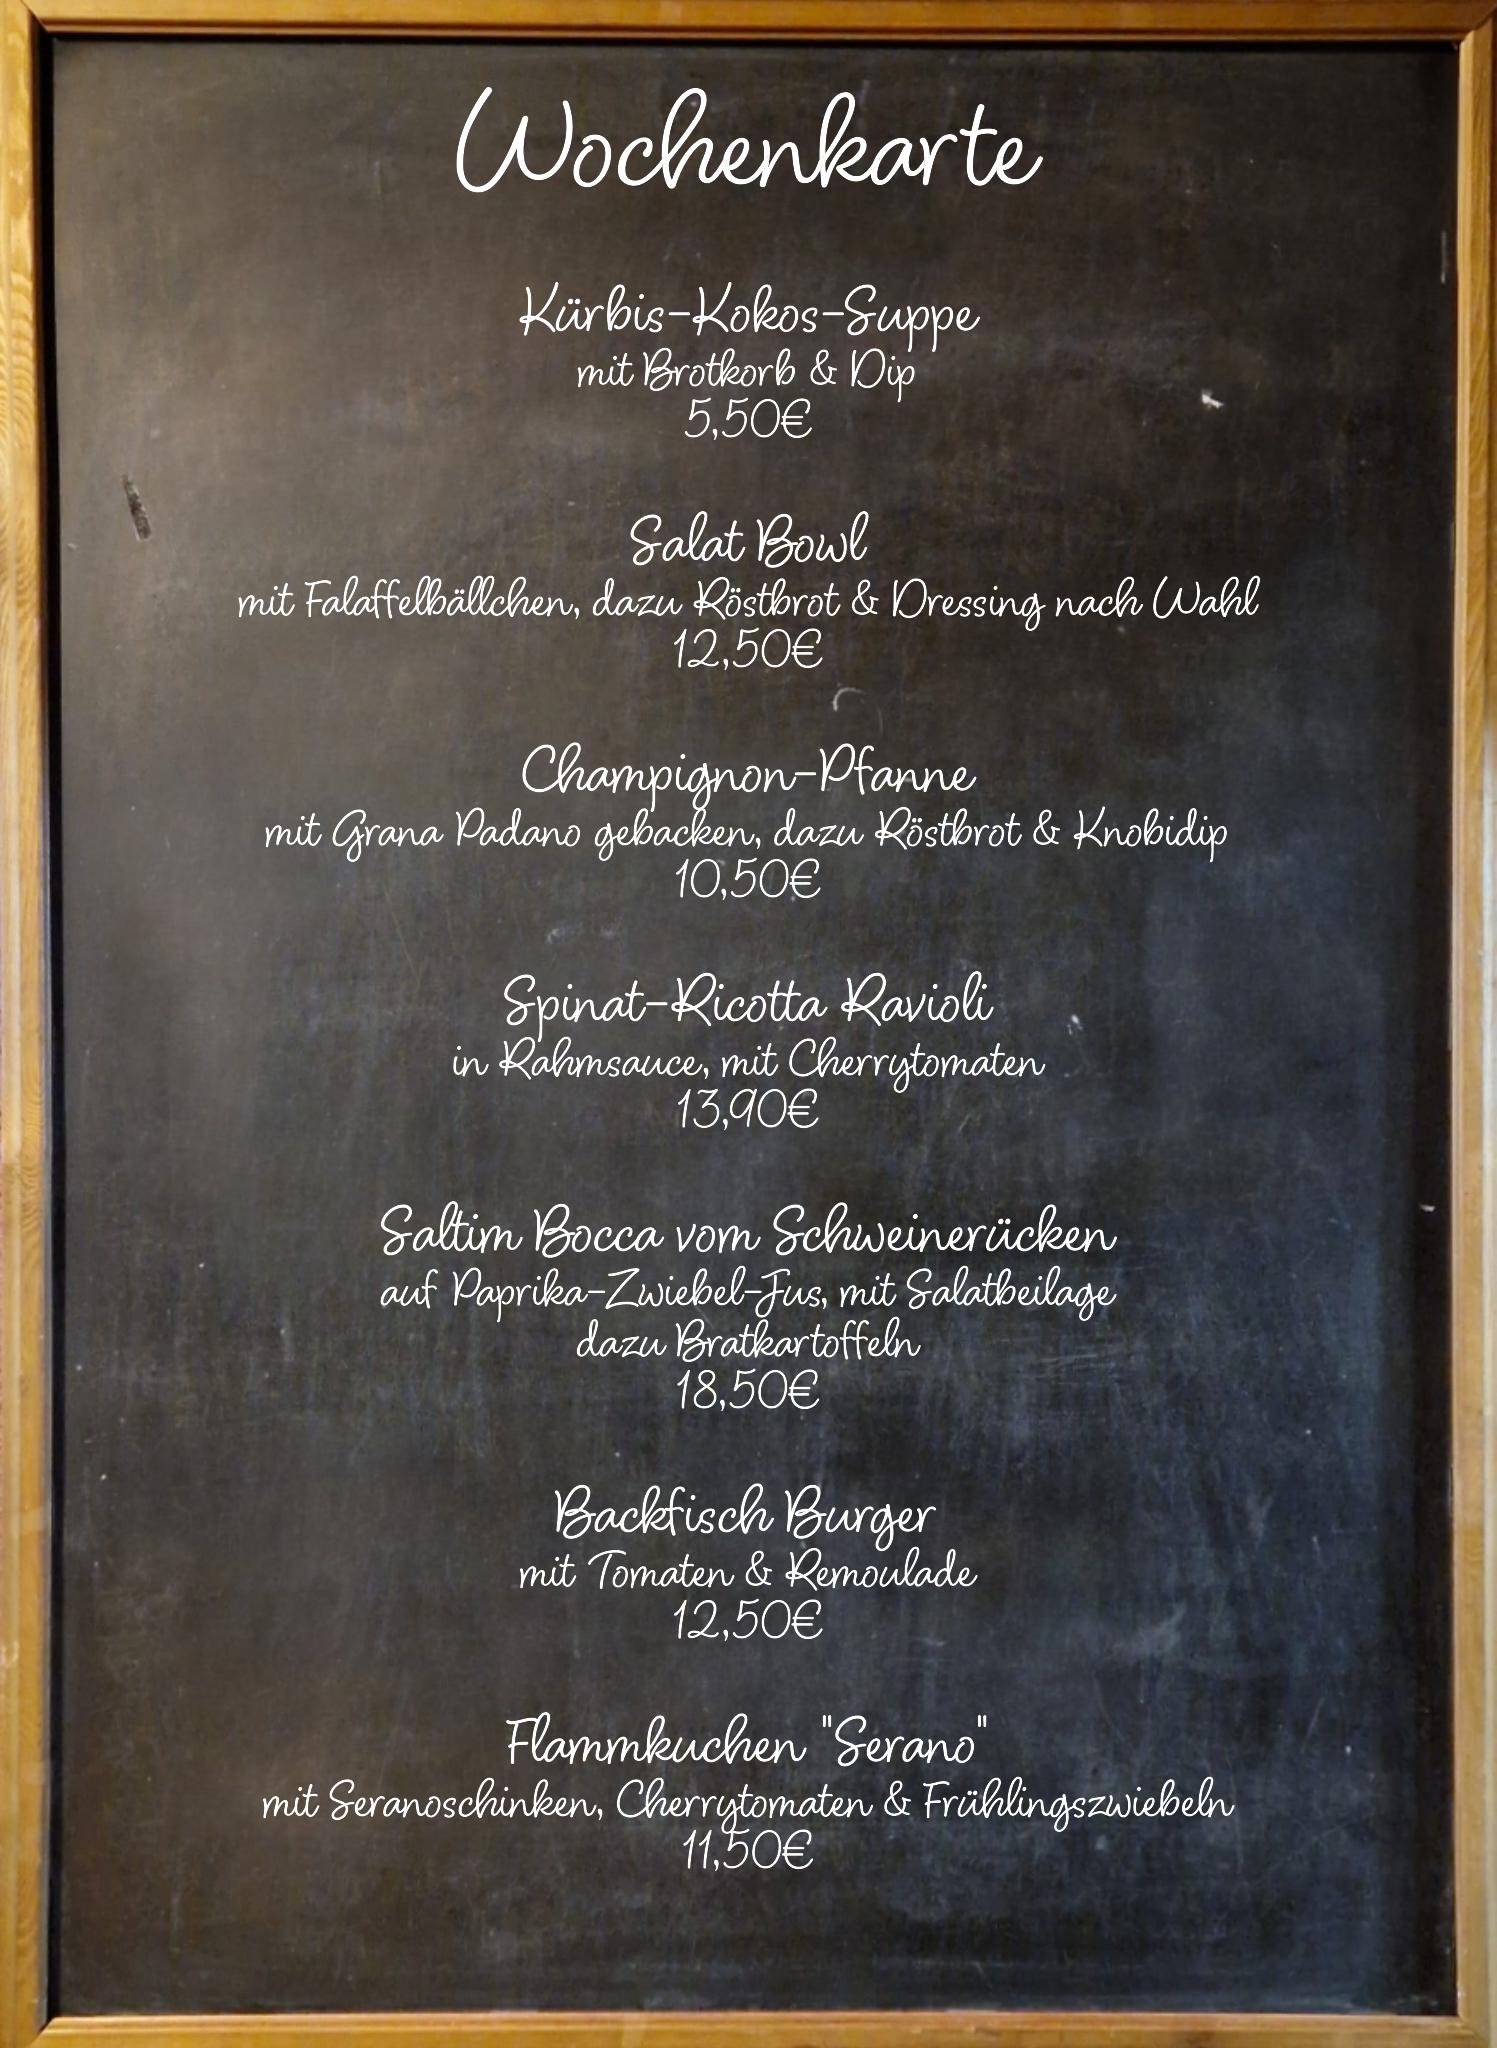 Wochenkarte
Kürbis-Kokos-Suppe
mit Brotkorb & Dip
5,50€
Salat Bowl
mit Falaffelbällchen, dazu Röstbrot & Dressing nach Wahl
12,50€
Champignon-Pfanne
mit Grana Padano gebacken, dazu Röstbrot & Knobidip
10,50€
Spinat-Ricotta Ravioli
in Rahmsauce, mit Cherrytomaten
13,90€
Saltim Bocca vom Schweinerücken
auf Paprika-Zwiebel-Jus, mit Salatbeilage
dazu Bratkartoffeln
18,50€
Backfisch Burger
mit Tomaten & Remoulade
12,50€
Flammkuchen "Serano"
mit Seranoschinken, Cherrytomaten & Frühlingszwiebeln
11,50€